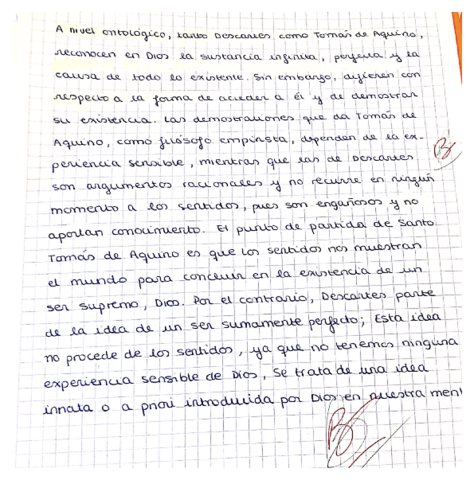 A nivel ontológico, tanto Descartes como Tomás de Aquino,
reconocen en Dios la sustancia infinita, perfecta y la
causa de todo lo existente. Sin embargo, difieren con
respecto a la forma de acceder a él y de demostrar
su existencia. Las demostraciones que da Tomás de
Aquino, como filósofo empirista, dependen de la ex-
periencia sensible, mientras que las de Descartes
son argumentos racionales y no recurre en ningún
momento a los sentidos, pues son engañosos y no
aportan conocimiento. El punto de partida de Santo
Tomás de Aquino es que los sentidos nos muestran
el mundo para concluir en la existencia de un
ser supremo, Dios. Por el contrario, Descartes parte
de la idea de un ser sumamente perfecto; Esta idea
no procede de los sentidos, ya que no tenemos ninguna
experiencia sensible de Dios, se trata de una idea
innata o a priori introducida por Dios en nuestra ment